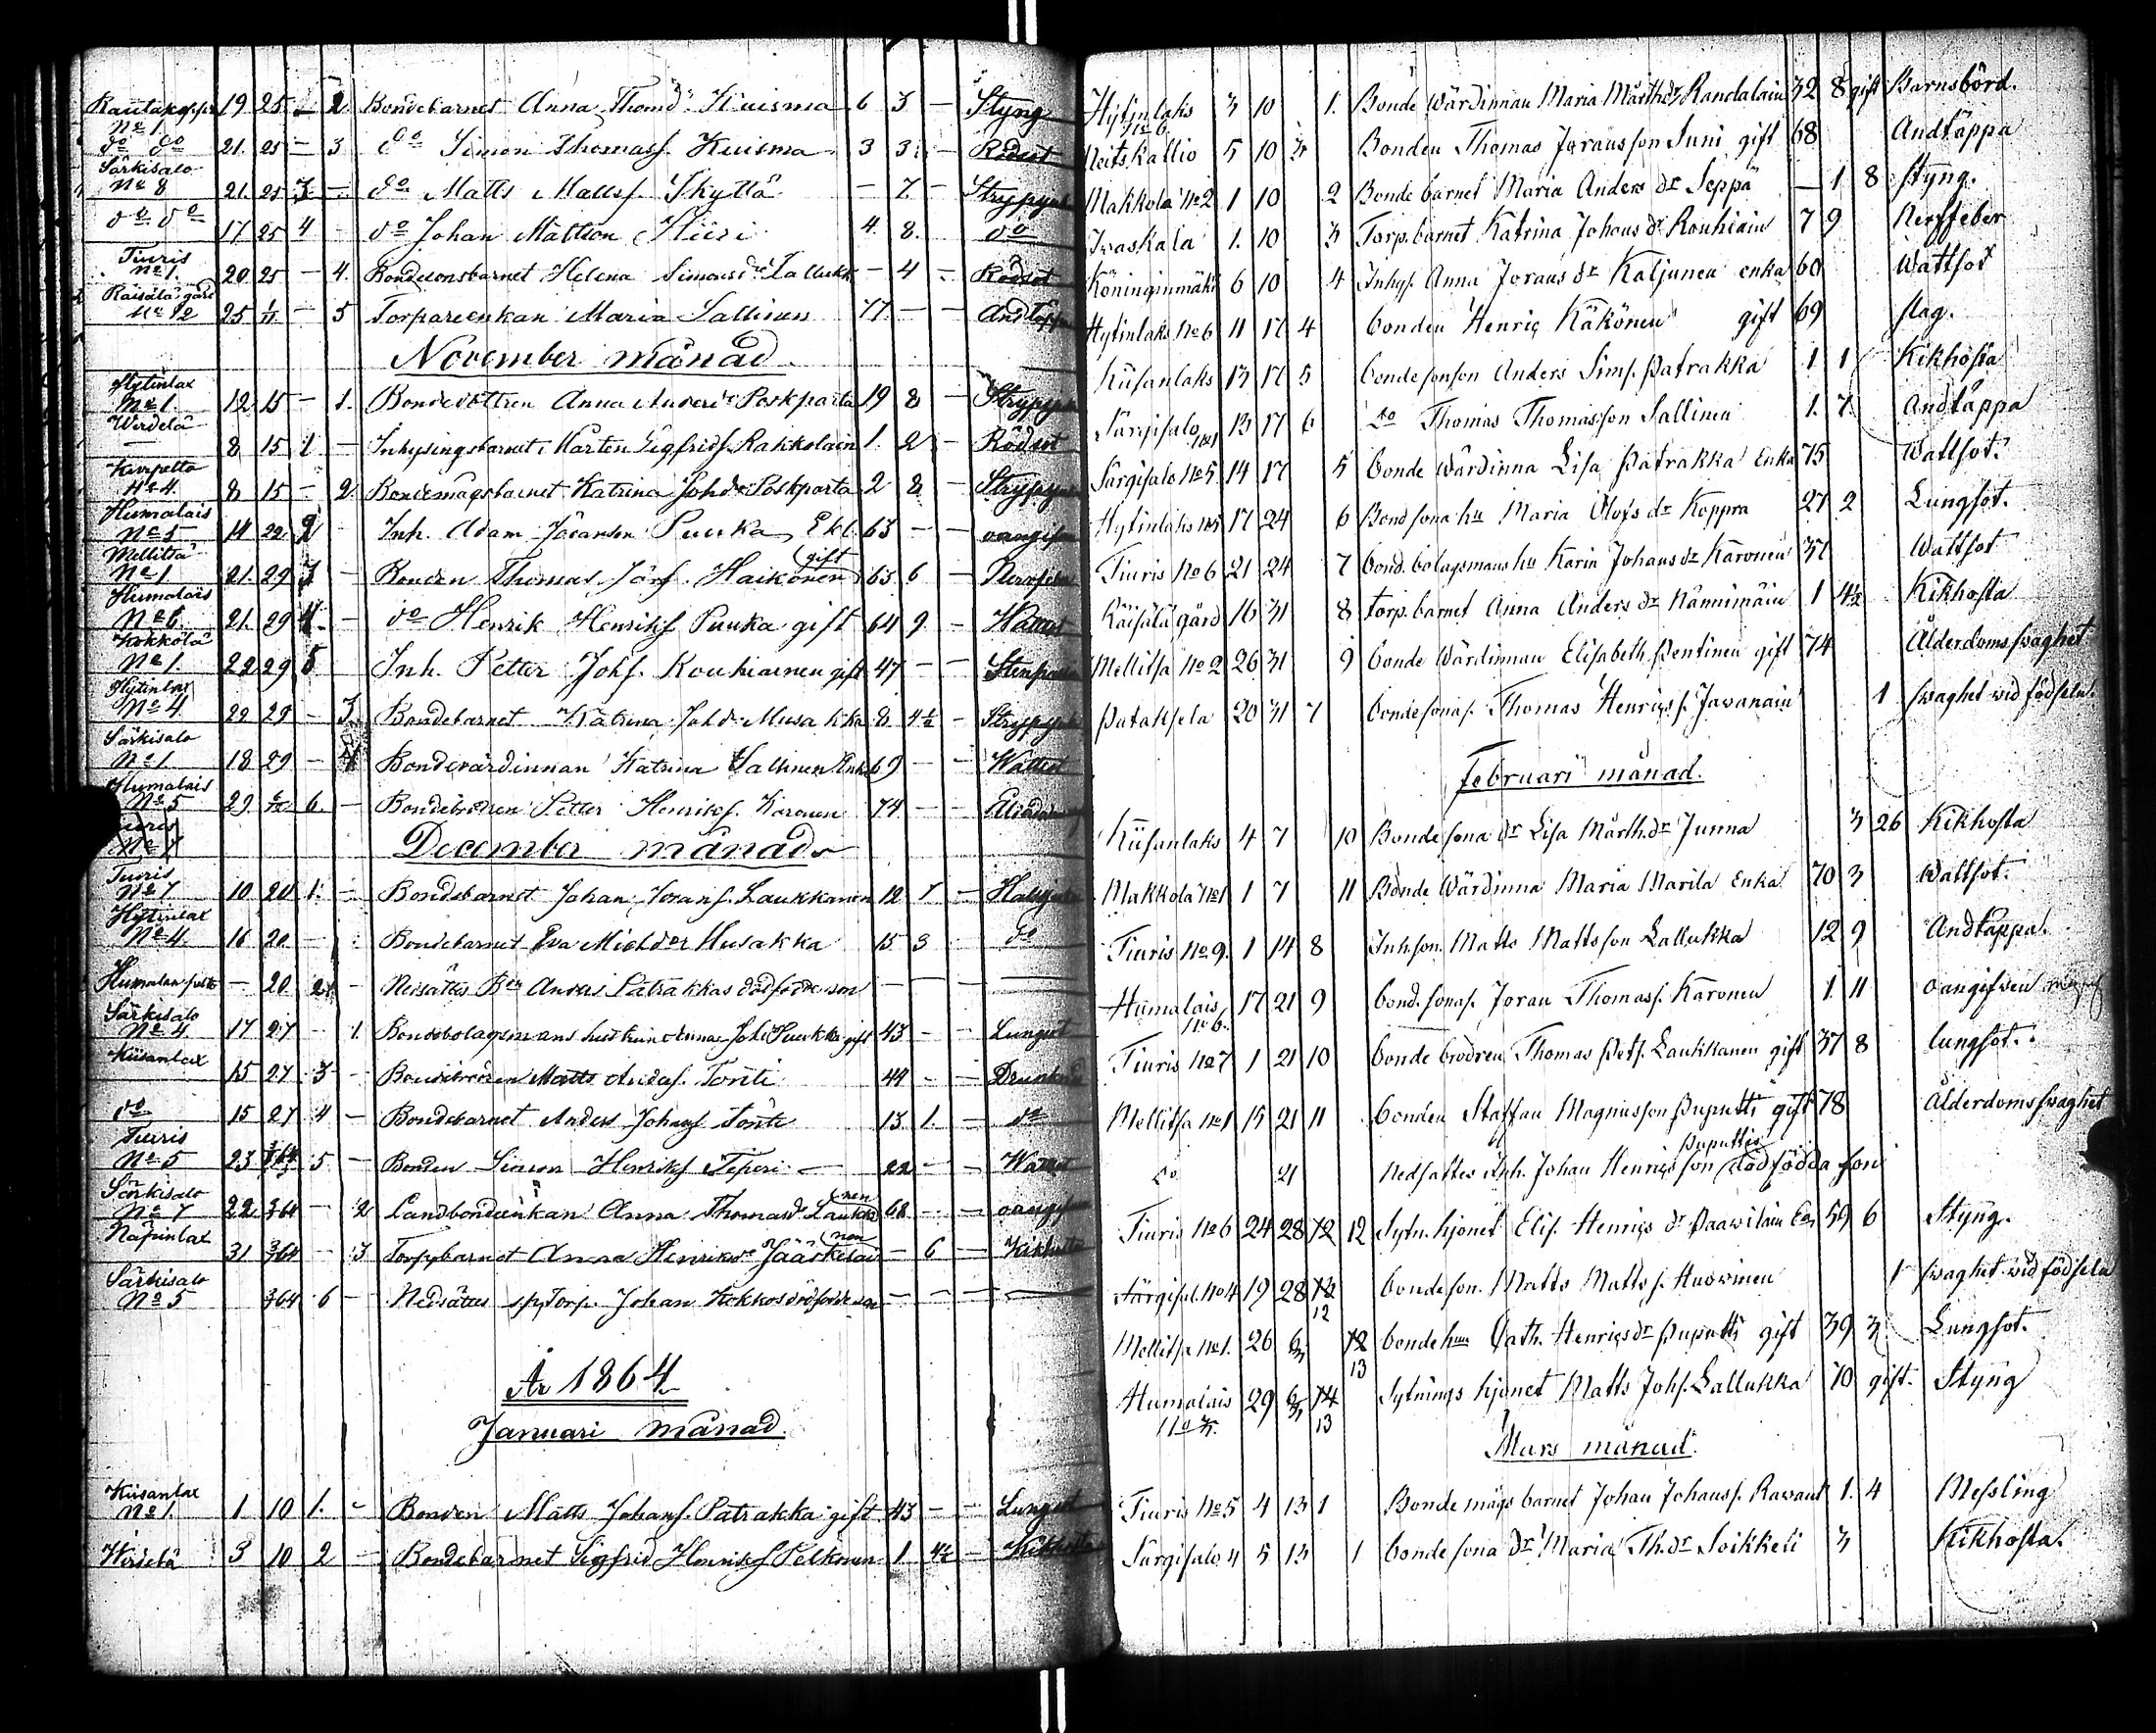 Rautakoppi No 1 19 25 – 2 Bondebarnet Anna Thomdr Kuisma 6 3 – Styng
do do 21. 25 – 3 do Simon Thomass. Kuisma 3 3. – Rödsot
Särkisalo No 8 21. 25 3 – do Matts Mattss. Skyttä – 7 – Strypsjuk
do do 17 25 4 – do Johan Mattson Hiiri 4. 8. do
Tiuris No 1. 20 25 – 4. Helena Simonsdr Lallukka – 4 – Rödsot
Räisälä gård No 12 25 1/11 – 5 Torpareenkan Maria Sallinen 77. – – Andtäppa
November månad
Hytinlax No 1. 12. 15 – 1. Bondedottren Anna Poskparta 19 8 –
Wirdelä – 8 15 1 – Inhysingsbarnet Mårten Sigfridss. Rakkolain 1. 2 – Rödsot
No 4. 8 15 – 2. Bondemågsbarnet Katrina Johdr Poskparta 2 8 –
Humalais No 5 14 22 2 – Inh. Adam Puukka Ekl. 63 – – oangifven
Mellitsä No 1 21. 29 3 – Bonden Thomas Jörs. Haikonen gift 63 6 –
Humalais No 6. 21. 29 4 – do Henrik Henrikss. Puuka gift 64 9. – Wattsot
Kokkola No 1. 22 29 5 Inh. Petter Johs. Rouhiainen gift 47 – –
Hytinlax No 4 29 29 – 3 Bondebarnet Katrina Johdr Musakka 8 4½ –
Särkisalo No 1 18 29 – 4 Bondevärdinnan Katrina Sallinen Enk. 69 – – Wattsot
Humalais No 5 29. 6/12 6. – Bondebrodren Petter Henrikss. Karonen 74. – –
Tiuris No 7
December månad
Tiuris No 7. 10 20 1. – Bondebarnet Johan Jorans. Laukkanen 12 7 –
Hytinlax No 4. 16 20. – Bondebarnet Eva Michdr Musakka 15 3 do
– 20. 2. – Nedsattes Bdn Anders Patrakkas dödfödde son – – –
Särkisalo No 4. 17 27 – 1. Bondebolagsmans hustrun Anna Johdr Puukka gift 43 – – Lungsot
Kiisanlax 15 27 3 – Bondebroren Matts Anders. Tontti 44 – – Drunknad
do 15 27 4 – Bondebarnet Anders Johanss. Tontti 13 1. – do
Tiuris No 5 23 3/1 64 5 – Bonden Simon Henrikss. Teperi – 22 – – Wattsot
Särkisalo No 7 22 3/1 64 – 2 Landbondeenkan Anna Thomasdr Laukkanen 68 – – oangifven
Näpinlax 31 3/1 64 – 3 Torp.barnet Anna Henriksdr Jääskeläinen – 6 – Kikhosta
Särkisalo No 5 3/1 64 6 – Nedsattes Torp. Johan Kokkos dödfödde son – – –
År 1864
Januari månad.
Kiisanlax No 1. 1 10 1. – Bonden Matts Johanss. Patrakka gift 43 – – Lungsot
Wirdelä 3 10 2 – Bondebarnet Sigfrid Henrikss. Pelkonen 1 4½ – Kikhosta
Hytinlaks No 6 3 10 1. Bonde Wärdinnan Maria Mårthdr Randalain 32 8 gift Barnsbörd.
Neitskallio 5 10 3 Bonden Thomas Joransson Suni gift 68 Andtäppa
Makkola No 2 1 10 2 Bonde barnet Maria Anders dr Seppä – 1 8 Styng.
Iwaskala 1. 10 3 Torp.barnet Katrina Johans dr Rouhiain 7 9 Nerffeber
Köninginmäki 6 10 4 Inhys. Anna Jorans dr Kaljunen enka 60 Wattsot
Hytinlaks No 6 11 17 4 bonden Henric Käkönen gift 69 slag.
Kiisanlaks 13 17 5 bondesonson Anders Sims. Patrakka 1 1 Kikhosta
Särgisalo No 1 13 17 6 do Thomas Thomasson Sallinen 1. 7. Andtäppa
Särgisalo No 5 14 17 5 bonde Wärdinna Lisa Patrakka Enka 75 Wattsot.
Hytinlaks No 5 17 24 6 Bondsona hu Maria Olofs dr Koppra 27 2 Lungsot.
Tiuris No 6 21 24 7 bond.bolagsmans hu Karin Johans dr Karonen 37 Wattsot
Räisälä gård 16 31 8 torp.barnet Anna Anders dr Nännimäin 1 4½ Kikhosta
Mellitsa No 2 26 31 9 bonde Wärdinnan Elisabeth Pentinen gift 74 Ålderdomsswaghet
Pataksela 20 31 7 bondesonas. Thomas Henrics s. Jawanain 1 swaghet wid födseln.
Februari månad.
Kiisanlaks 4 7 10 Bonde sona dr Lisa Mårth.dr Junna 3 26 Kikhosta
Makkola No 1 1 7 11 Bonde Wärdinna Maria Marila Enka 70 3 Wattsot.
Tiuris No 9. 1 14 8 Inh.son Matts Mattsson Lallukka 12 9 Andtäppa.
Humalais No 6. 17 21 9 bond.sonas. Joran Thomass. Karonen 1. 11 oangifven
Tiuris No 7 1 21 10 bonde brodren Thomas Pets. Laukkanen gift 37 8 lungsot.
Mellitsa No 1 15 21 11 bonden Staffan Magnusson Puputti gift 78 Ålderdomsswaghet
do 21 Nedsattes Inh. Johan Henricsson Puputtis dödfödda son
Tiuris No 6 24 28 12 12 Sytn.hjonet Elis. Henrics dr Paawilain Enk 59 6 Styng.
Särgisal. No 4 19 28 13 12 bondeson. Matts Mattss. Huowinen 1 swaghet wid födseln
Mellitsa No 1. 26 6/3 12 13 bonde hun Cath. Henricsdr Puputti gift 39 3 Lungsot.
Humalais 29 6/3 14 13 Sytnings hjonet Matts Johs. Lallukka 70 gift. Styng
Mars månad.
Tiuris No 5 4 13 1 Bonde mågs barnet Johan Johanss. Rawant 1. 4 Messling
Särgisalo 4 5 13 1 bonde sona dr Maria Th.dr Soikkeli 3 Kikhosta.